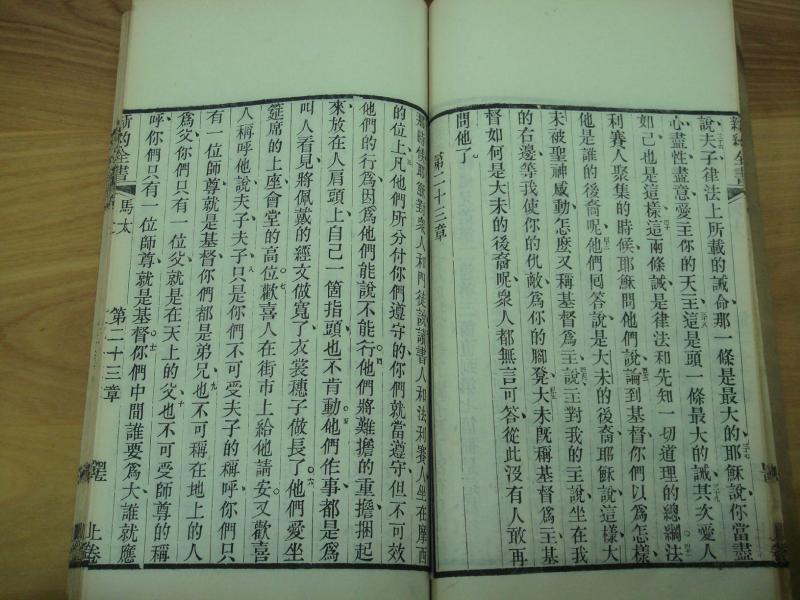 新約全書
說夫子律法上所載的誡命那一條是最大的耶穌說你當盡
心盡性盡意愛主你的天主這是頭一條最大的誡其次愛人
如己也是這樣這兩條誡是律法和先知一切道理的總綱法
利賽人聚集的時候耶穌問他們說論到基督你們以爲怎樣
他是誰的後裔呢他們回答說是大未的後裔耶穌說這樣大
未被聖神感動怎麽又稱基督爲主說主對我的主說坐在我
的右邊等我使你的仇敵爲你的脚凳大未旣稱基督爲主基
督如何是大未的後裔呢衆人都無言可答從此沒有人敢再
問他了。
第二十三章
那時候耶穌對衆人和門徒說讀書人和法利賽人坐在摩西
的位上凡他們所分付你們遵守的你們就當遵守但不可效
他們的行爲因爲他們能說不能行。他們將難擔的重擔捆起
來放在人肩頭上自己一個指頭也不肯動。他們作事都是爲
叫人看見將佩戴的經文做寬了衣裳穗子做長了。他們愛坐
筵席的上座會堂的高位。歡喜人在街市上給他請安又歡喜
人稱呼他說夫子夫子只是你們不可受夫子的稱呼你們只
有一位師尊就是基督你們都是弟兄也不可稱在地上的人
爲父你們只有一位父就是在天上的父也不可受師尊的稱
呼你們只有一位師尊就是基督。你們中間誰要爲大誰就應
新約全書 馬太 第二十三章 上卷